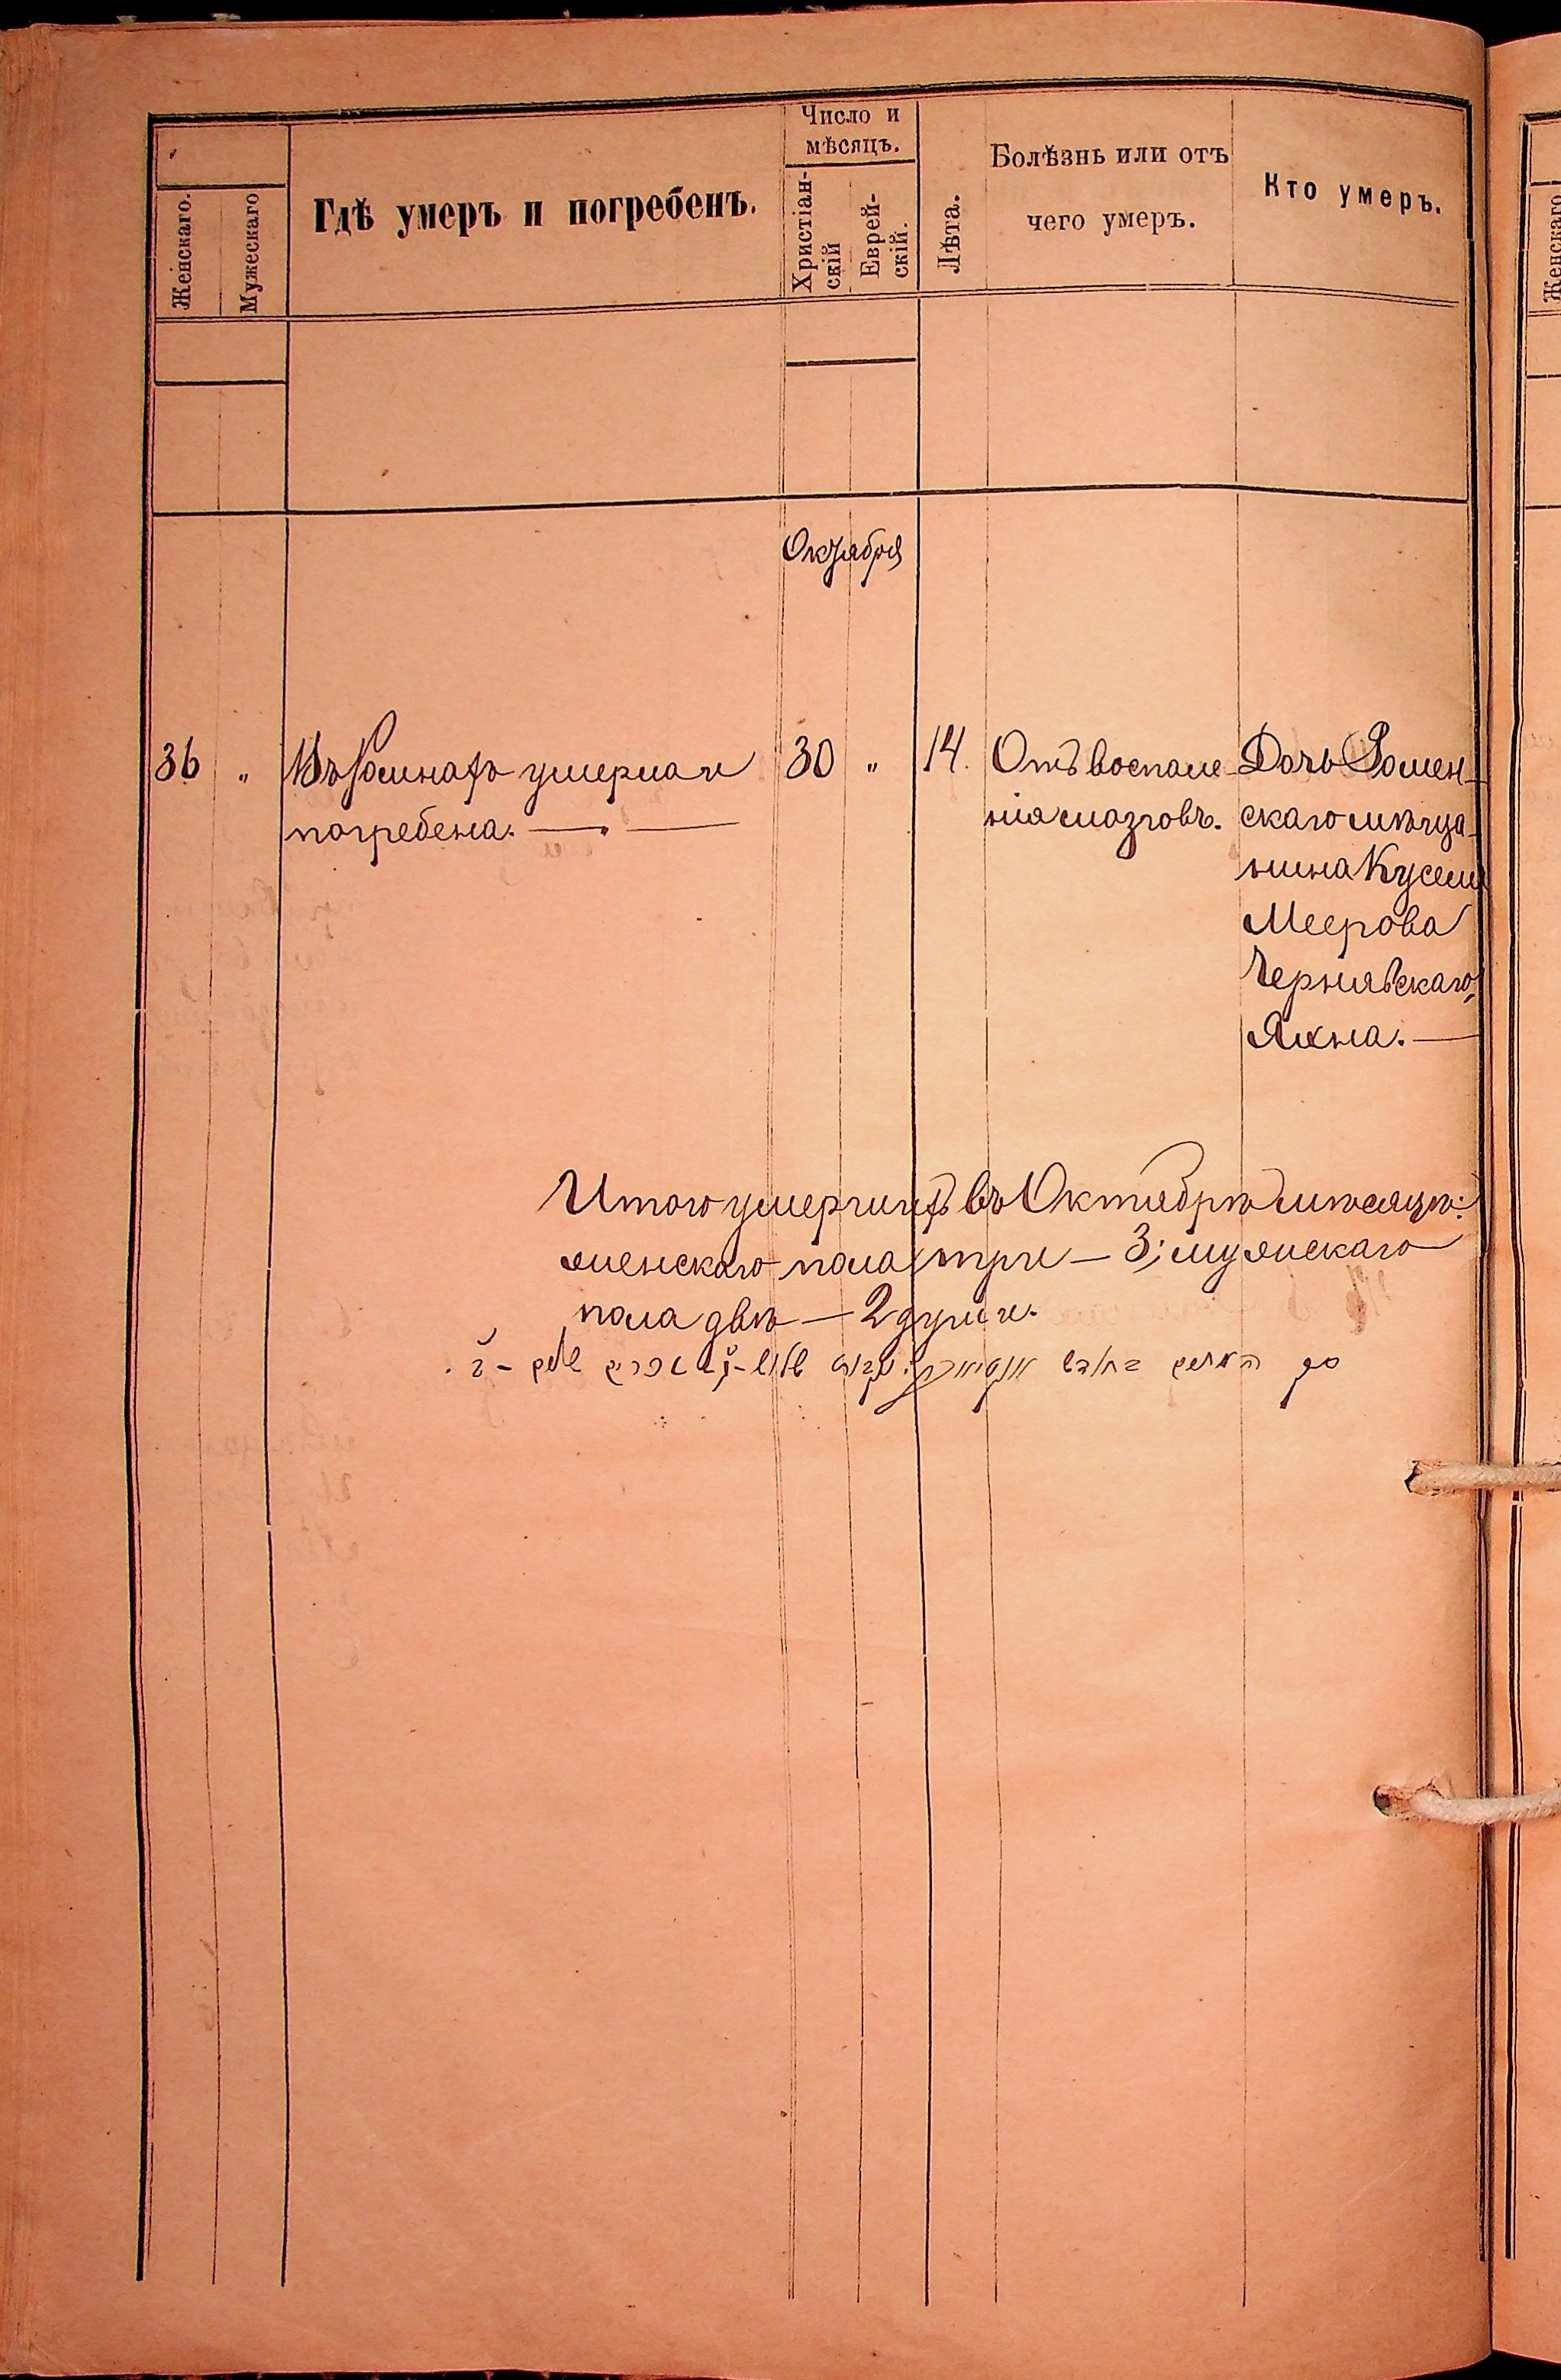 Женскаго.
Мужескаго
Гдѣ умеръ и погребенъ.
Число и
мѣсяцъ.
Христіан-
скій
Еврей-
скій.
Лѣта.
Болѣзнь или отъ
чего умеръ.
Кто умеръ.
Октября
36 " Въ Ромнахъ умерла и 30 " 14. Отъ воспале- Дочь Ромен-
погребена. — нія мозговъ. скаго мѣща-
нина Куселя
Меерова
Чернявскаго,
Яхна. —
Итого умершихъ въ Октябрѣ мѣсяцѣ:
женскаго пола три — 3; мужскаго
пола двѣ — 2 души.
Женскаго